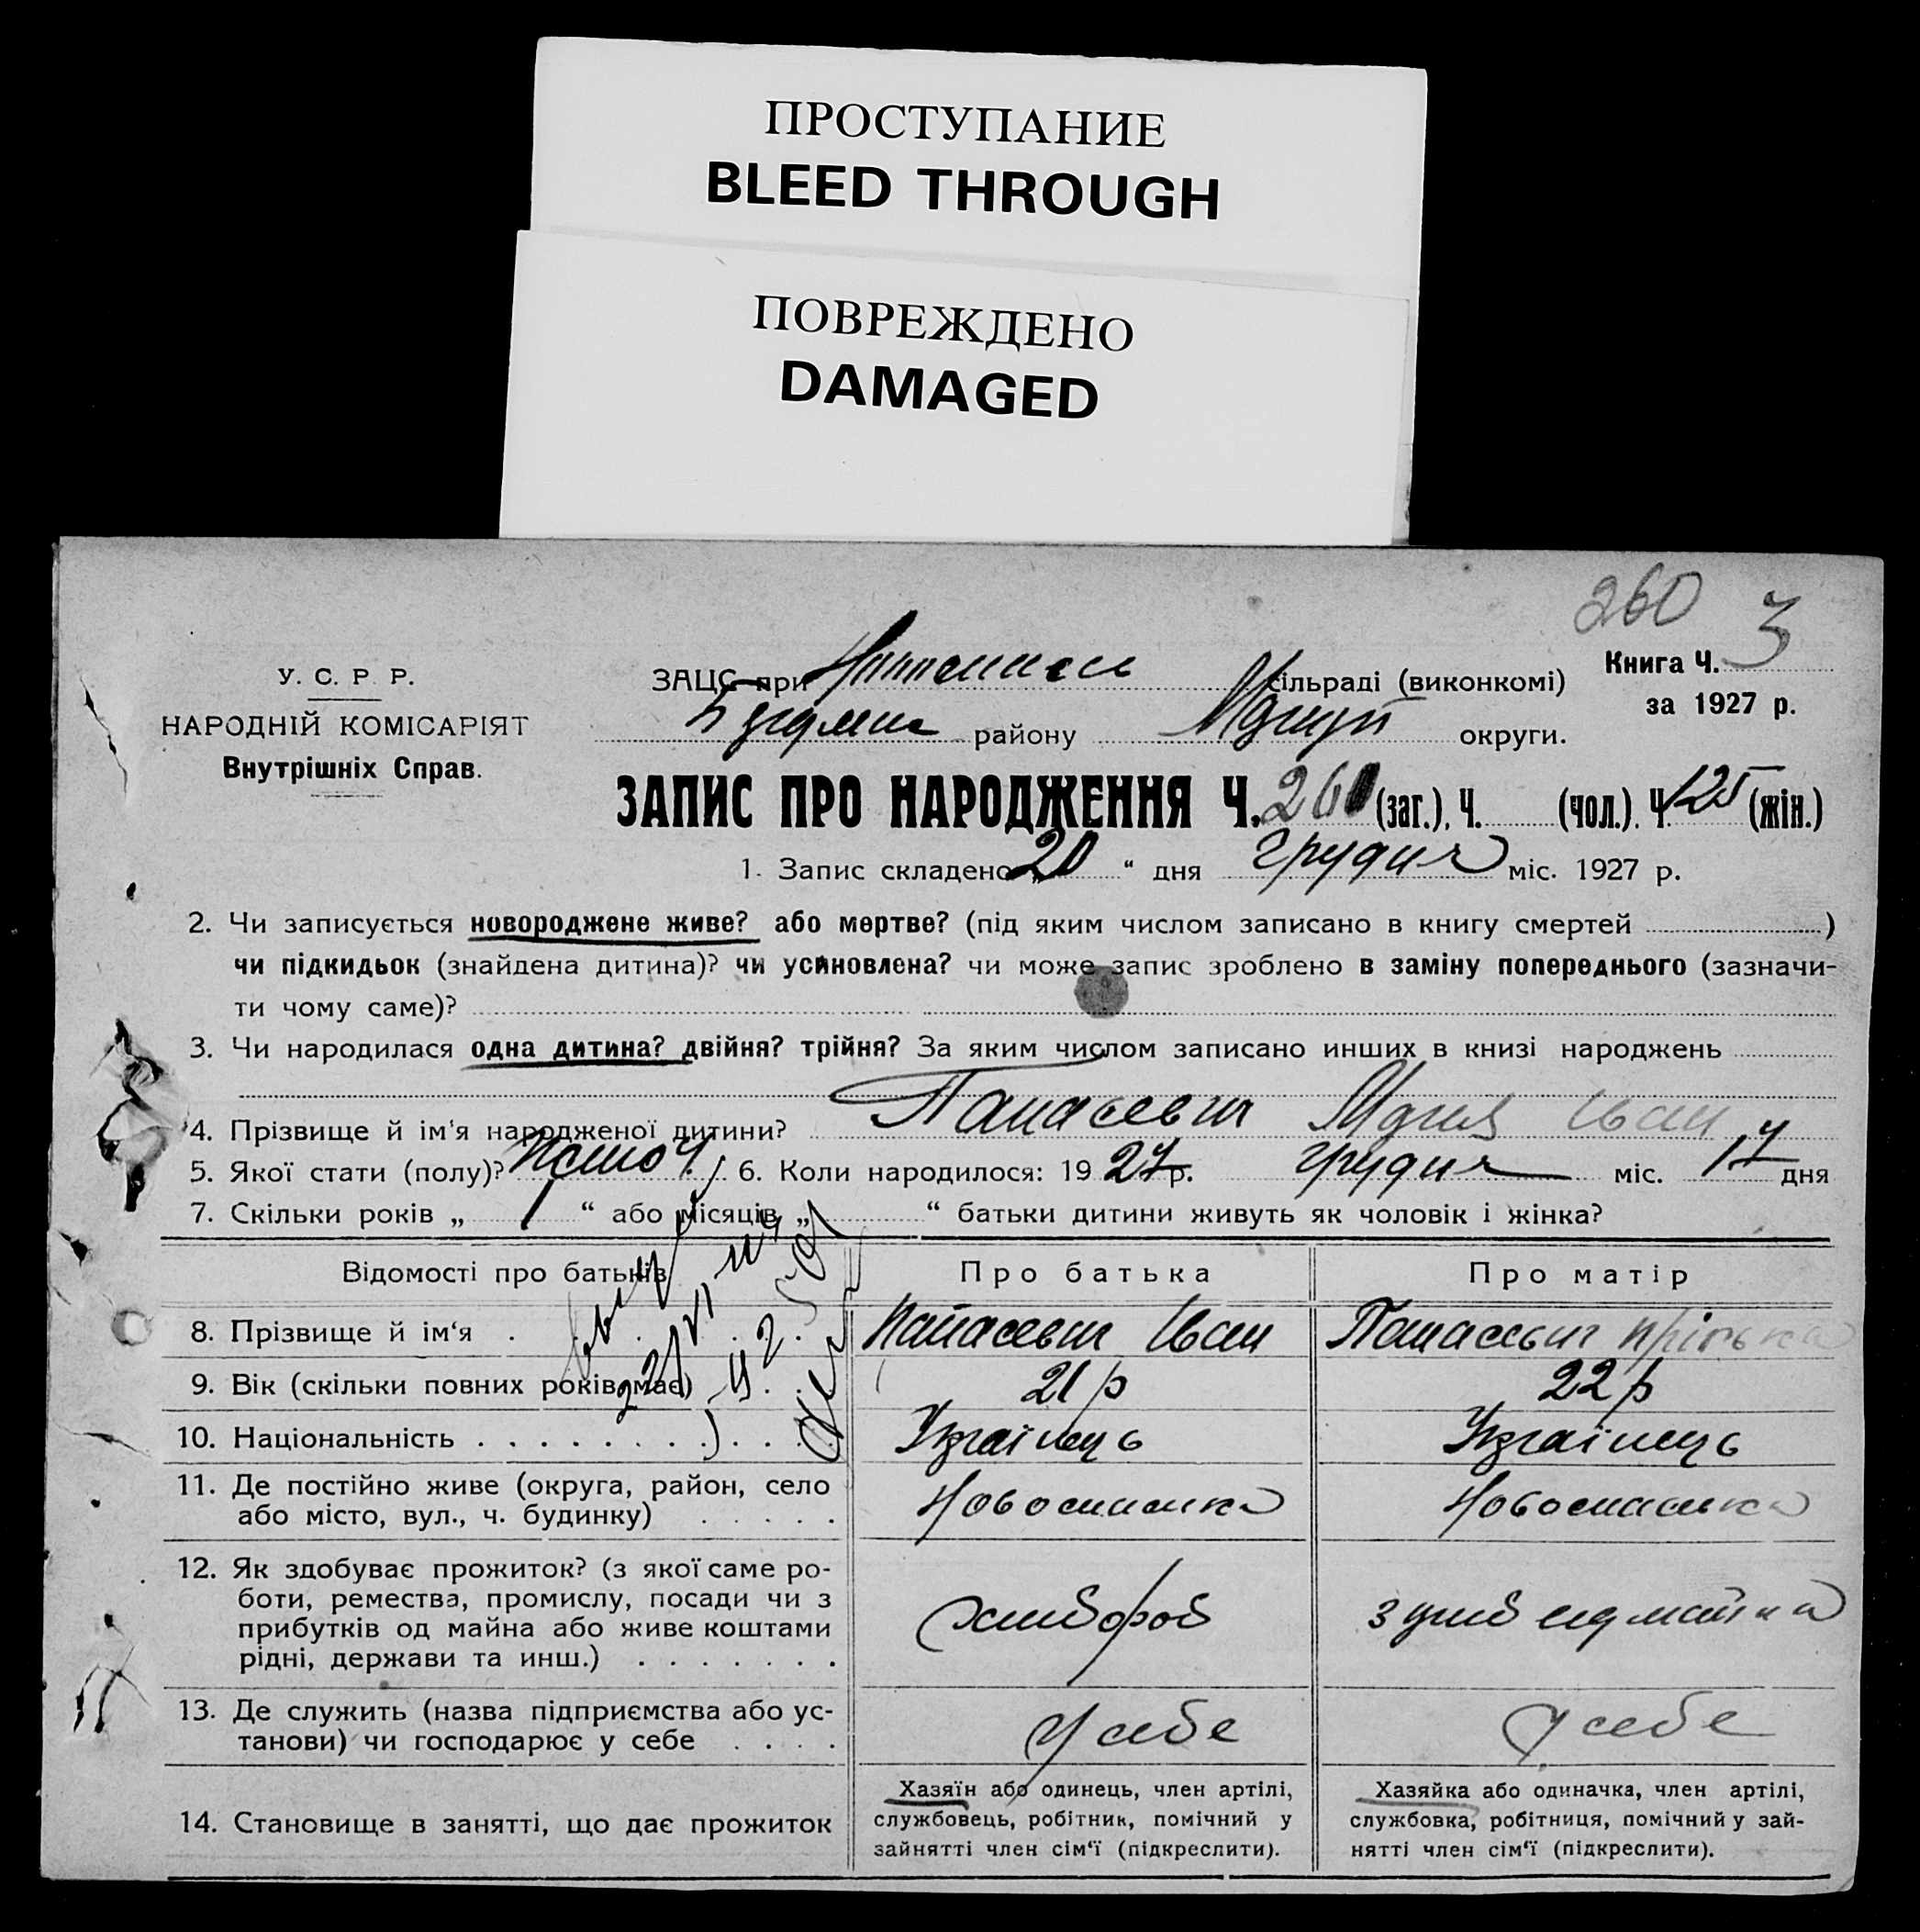 ПРОСТУПАНИЕ
BLEED THROUGH
ПОВРЕЖДЕНО
DAMAGED
260
У. С. Р. Р.
НАРОДНІЙ КОМІСАРІЯТ
Внутрішніх Справ.
ЗАЦС при сільраді (виконкомі)
району округи.
Книга Ч. 3
за 1927 р.
ЗАПИС ПРО НАРОДЖЕННЯ Ч. 260 (заг.), Ч. (чол.). Ч. 125 (жін.)
1. Запис складено „ 20 “ дня грудня міс. 1927 р.
2. Чи записується новороджене живе? або мертве? (під яким числом записано в книгу смертей )
чи підкидьок (знайдена дитина)? чи усиновлена? чи може запис зроблено в заміну попереднього (зазначи-
ти чому саме)?
3. Чи народилася одна дитина? двійня? трійня? За яким числом записано инших в книзі народжень
4. Прізвище й ім'я народженої дитини? Панасевич Іван
5. Якої стати (полу)? 6. Коли народилося: 19 27 р. грудня міс. 17 дня
7. Скільки років „ 1 “ або місяців „ “ батьки дитини живуть як чоловік і жінка?
Відомості про батьків Про батька Про матір
8. Прізвище й ім'я . Панасевич Іван Панасевич
9. Вік (скільки повних років має) 21 р 22 р
10. Національність . . . . . . . . . . . Українець Українець
11. Де постійно живе (округа, район, село
або місто, вул., ч. будинку) . . . . . Новоспаська Новоспаська
12. Як здобуває прожиток? (з якої саме ро-
боти, ремества, промислу, посади чи з
прибутків од майна або живе коштами
рідні, держави та инш.) . . . . . . . хлібороб
13. Де служить (назва підприємства або ус-
танови) чи господарює у себе . . . . У себе У себе
14. Становище в занятті, що дає прожиток
Хазяїн або одинець, член артілі,
службовець, робітник, помічний у
зайнятті член сім'ї (підкреслити).
Хазяйка або одиначка, член артілі,
службовка, робітниця, помічний у зай-
нятті член сім'ї (підкреслити).